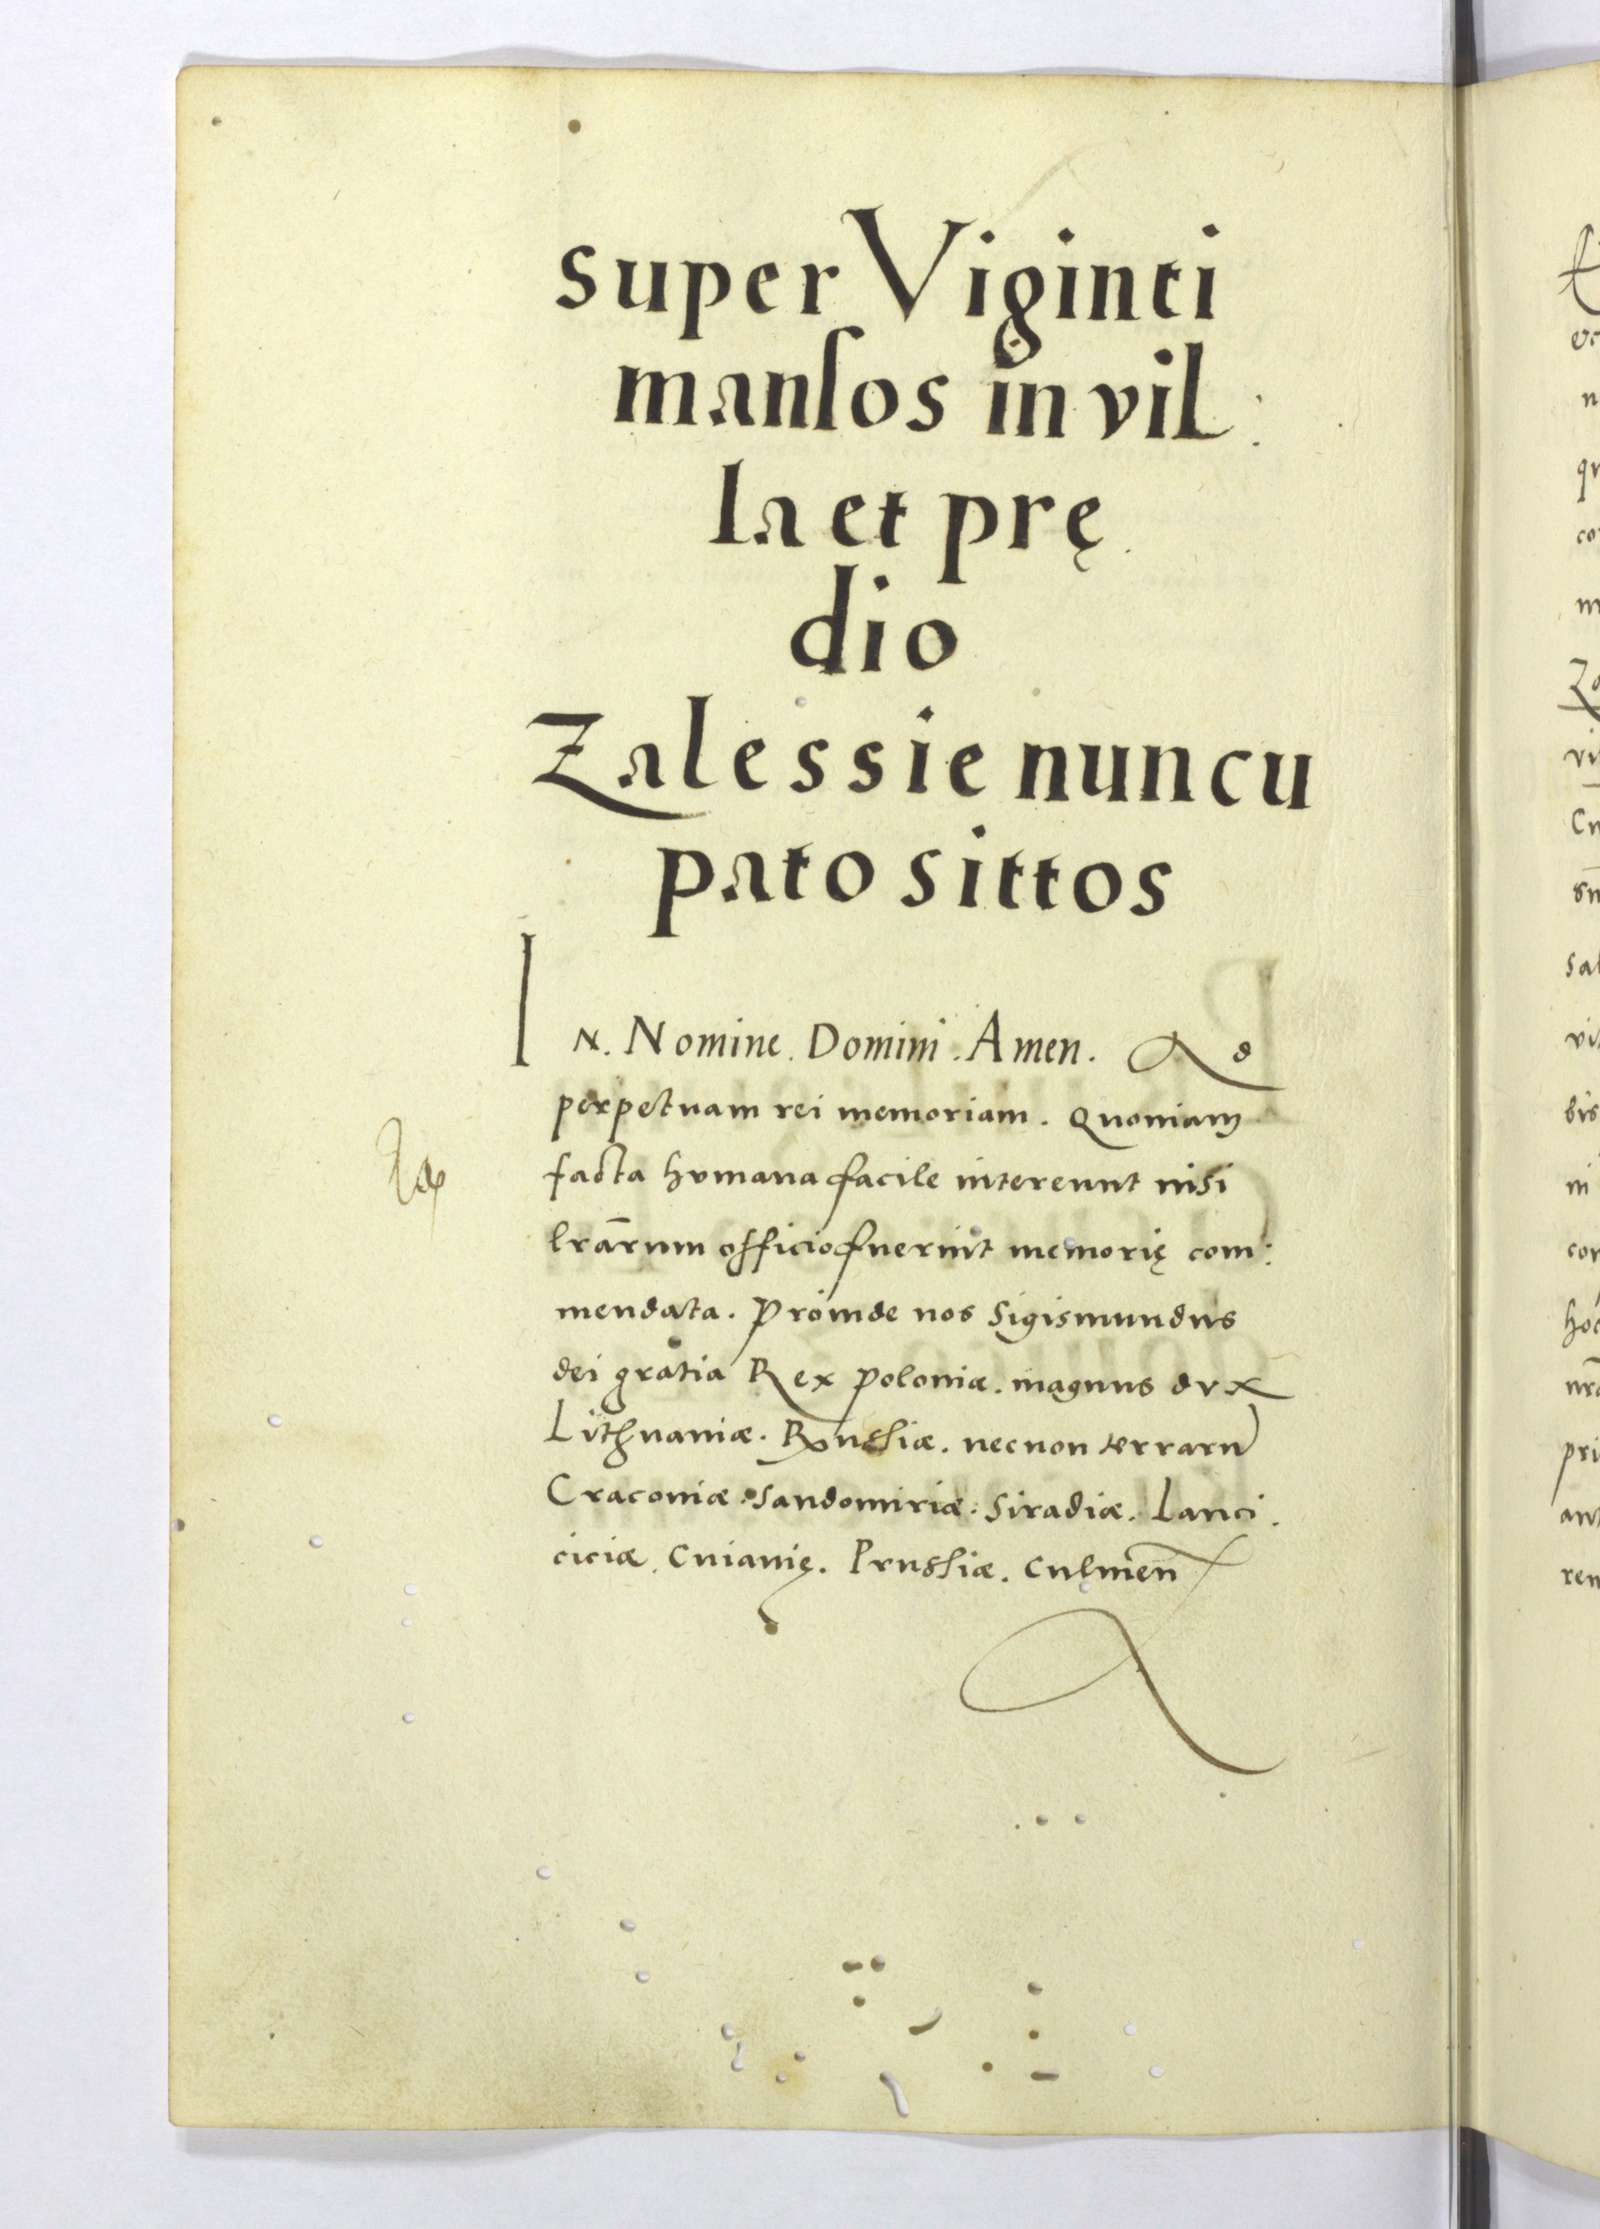 super Viginti
manſos in vil
la et prę
dio
Zalessie nuncu
pato sittos
IN. Nomine. Domini. Amen. Ad
perpetuam rei memoriam. Quoniam
facta hvmana facile intereunt nisi
lrārum officio fuerint memorię com:
mendata. Proinde nos Sigismundus
dei gratia Rex Poloniæ. magnus dvx
Lithuaniæ. Rusſiæ. necnon terrarū
Cracouiæ. Sandomiriæ. Siradiæ. Lanci.
ciciæ. Cuiauię. Prusſiæ. Culmen̄